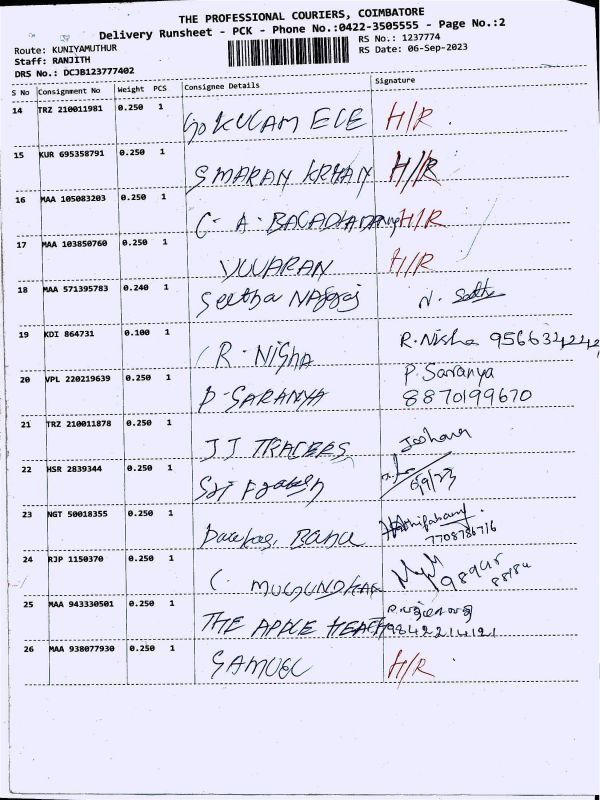 THE PROFESSIONAL COURIERS, COIMBATORE
Delivery Runsheet - PCK - Phone No.:0422-3505555 - Page No.:2
Route: KUNIYAMUTHUR
Staff: RANJITH
DRS No.: DCJB123777402
RS No.: 1237774
RS Date: 06-Sep-2023
S No Consignment No Weight PCS Consignee Details Signature
14 TRZ 210011981 0.250 1 GOKULAM ELE H/R
15 KUR 695358791 0.250 1 SMARAN KRHAN H/R
16 MAA 105083203 0.250 1 C. A. H/R
17 MAA 103850760 0.250 1 YUVARAN H/R
18 MAA 571395783 0.240 1 Seetha Nagaraj
19 KDI 864731 0.100 1 R. NISHA R.Nisha
20 VPL 220219639 0.250 1 P. SARANYA P. Saranya
8870199670
21 TRZ 210011878 0.250 1 JJ TRADERS
22 HSR 2839344 0.250 1 Sri 6/9/23
23 NGT 50018355 0.250 1 Banu
7708786716
24 RJP 1150370 0.250 1 C. MUGUNDHAN
25 MAA 943330501 0.250 1 THE APPLE HEALTH
9842214121
26 MAA 938077930 0.250 1 SAMUEL H/R